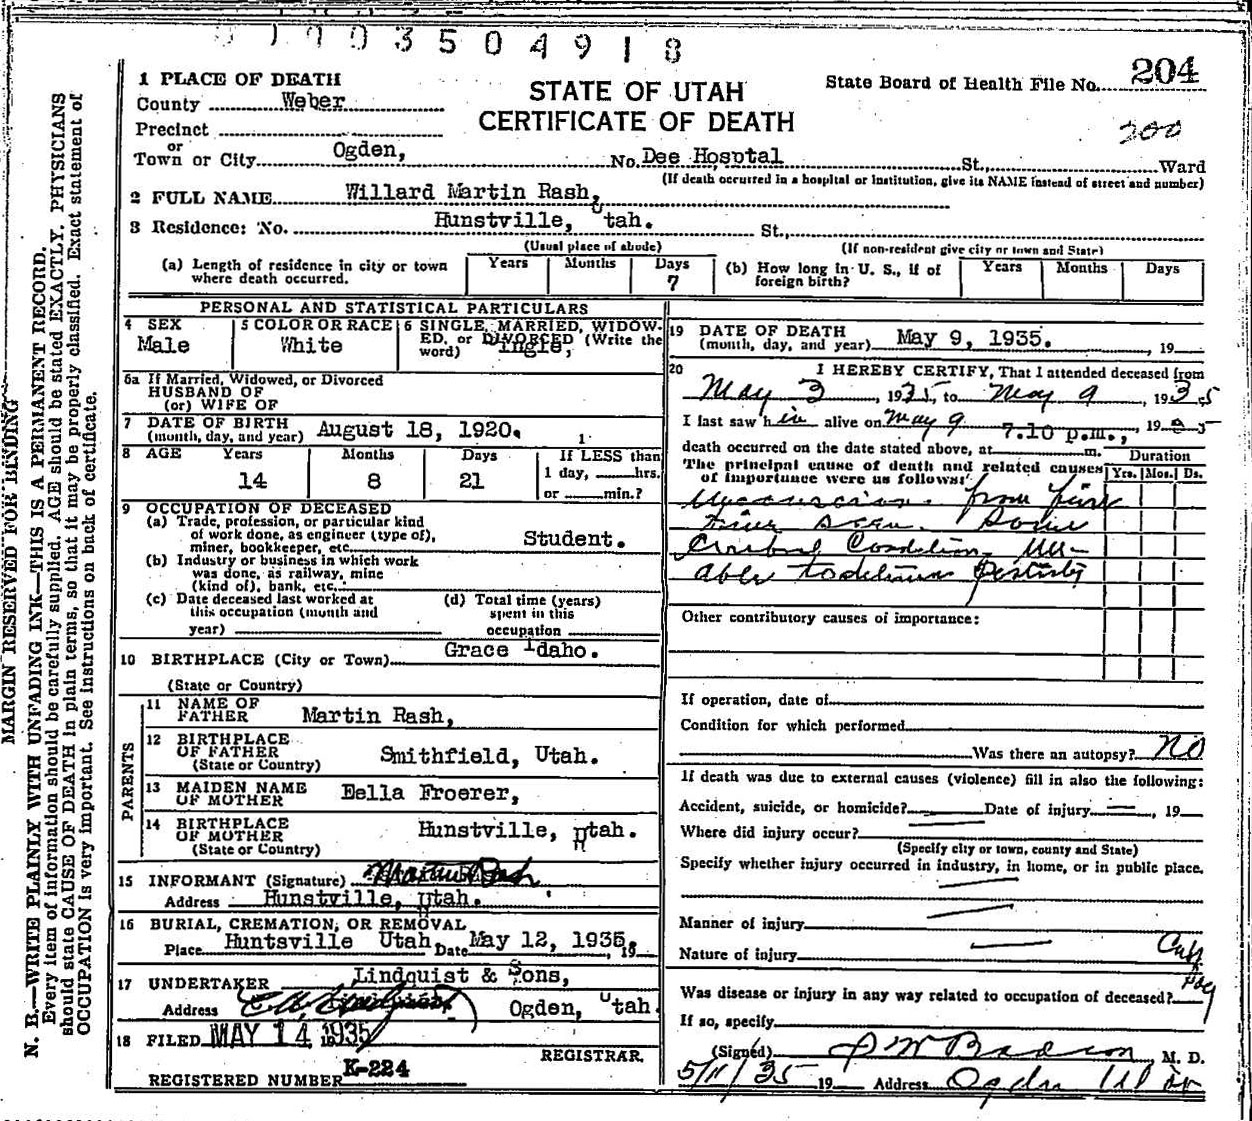 3 5 0 4 9 1 8
1 PLACE OF DEATH
County Weber
Precinct
or
Town or City Ogden,
STATE OF UTAH
CERTIFICATE OF DEATH
State Board of Health File No. 204
200
No. Dee Hosptal St., Ward
(If death occurred in a hospital or institution, give its NAME instead of street and number)
2 FULL NAME Willard Martin Rash,
3 Residence: No. Hunstville, Utah. St.,
(Usual place of abode) (If non-resident give city or town and State)
(a) Length of residence in city or town where death occurred. Years Months Days 7
(b) How long in U. S., if of foreign birth? Years Months Days
PERSONAL AND STATISTICAL PARTICULARS
4 SEX Male
5 COLOR OR RACE White
6 SINGLE, MARRIED, WIDOW-
ED, or DIVORCED (Write the
word) ingle,
6a If Married, Widowed, or Divorced
HUSBAND OF
(or) WIFE OF
7 DATE OF BIRTH
(month, day, and year) August 18, 1920. 1
8 AGE Years Months Days If LESS than
14 8 21 1 day, hrs.
or min.?
9 OCCUPATION OF DECEASED
(a) Trade, profession, or particular kind
of work done, as engineer (type of),
miner, bookkeeper, etc. Student.
(b) Industry or business in which work
was done, as railway, mine
(kind of), bank, etc.
(c) Date deceased last worked at
this occupation (month and
year)
(d) Total time (years)
spent in this
occupation
10 BIRTHPLACE (City or Town) Grace Idaho.
(State or Country)
PARENTS
11 NAME OF
FATHER Martin Rash,
12 BIRTHPLACE
OF FATHER Smithfield, Utah.
(State or Country)
13 MAIDEN NAME
OF MOTHER Eella Froerer,
14 BIRTHPLACE
OF MOTHER Hunstville, Utah.
(State or Country)
15 INFORMANT (Signature) Martin Rash
Address Hunstville, Utah.
16 BURIAL, CREMATION, OR REMOVAL
Place Huntsville Utah Date May 12, 1935, 19
17 UNDERTAKER Lindquist & Sons,
Address Ogden, Utah.
18 FILED MAY 14 1935
REGISTRAR.
REGISTERED NUMBER K-224
19 DATE OF DEATH
(month, day, and year) May 9, 1935. , 19
20 I HEREBY CERTIFY, That I attended deceased from
May 3, 1935, to May 9, 1935
I last saw him alive on May 9, 19 5
7.10 p.m.,
death occurred on the date stated above, at m.
Duration
The principal cause of death and related causes
of importance were as follows: Yrs. Mos. Ds.
from
Some
Condition Un-
able to
Other contributory causes of importance:
If operation, date of
Condition for which performed
Was there an autopsy? No
If death was due to external causes (violence) fill in also the following:
Accident, suicide, or homicide? Date of injury , 19
Where did injury occur?
(Specify city or town, county and State)
Specify whether injury occurred in industry, in home, or in public place.
Manner of injury
Nature of injury
Was disease or injury in any way related to occupation of deceased?
If so, specify
(Signed) M. D.
5/11/35 19 Address Ogden Utah
MARGIN RESERVED FOR BINDING
N. B.—WRITE PLAINLY WITH UNFADING INK—THIS IS A PERMANENT RECORD.
Every item of information should be carefully supplied. AGE should be stated EXACTLY. PHYSICIANS
should state CAUSE OF DEATH in plain terms, so that it may be properly classified. Exact statement of
OCCUPATION is very important. See instructions on back of certificate.